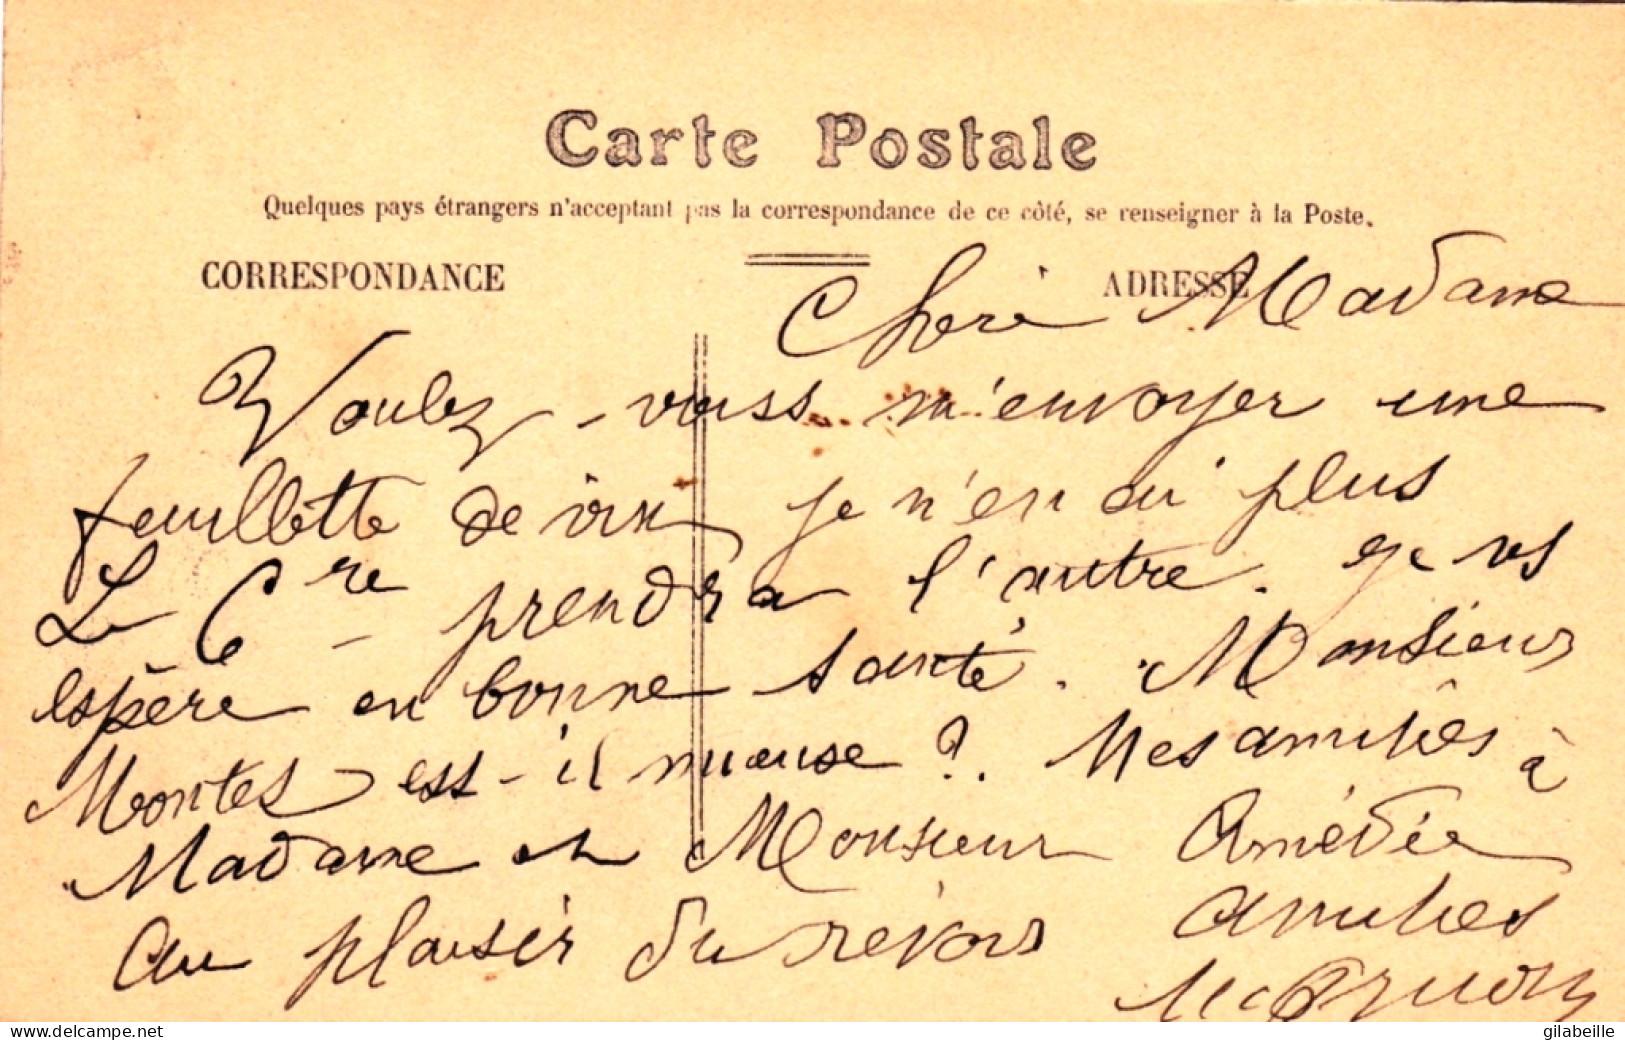 Carte Postale
Quelques pays étrangers n'acceptant pas la correspondance de ce côté, se renseigner à la Poste.
CORRESPONDANCE
ADRESSE
Chère Madame
Voulez-vous m'envoyer une
feuillette de vin je n'en ai plus
Le Cre prendra l'autre. Je vs
espère en bonne santé. Monsieur
Montes est-il mieux ? Mes amitiés à
Madame et Monsieur Amédée
Au plaisir du revoir amitiés
delcampe.net
gilabeille